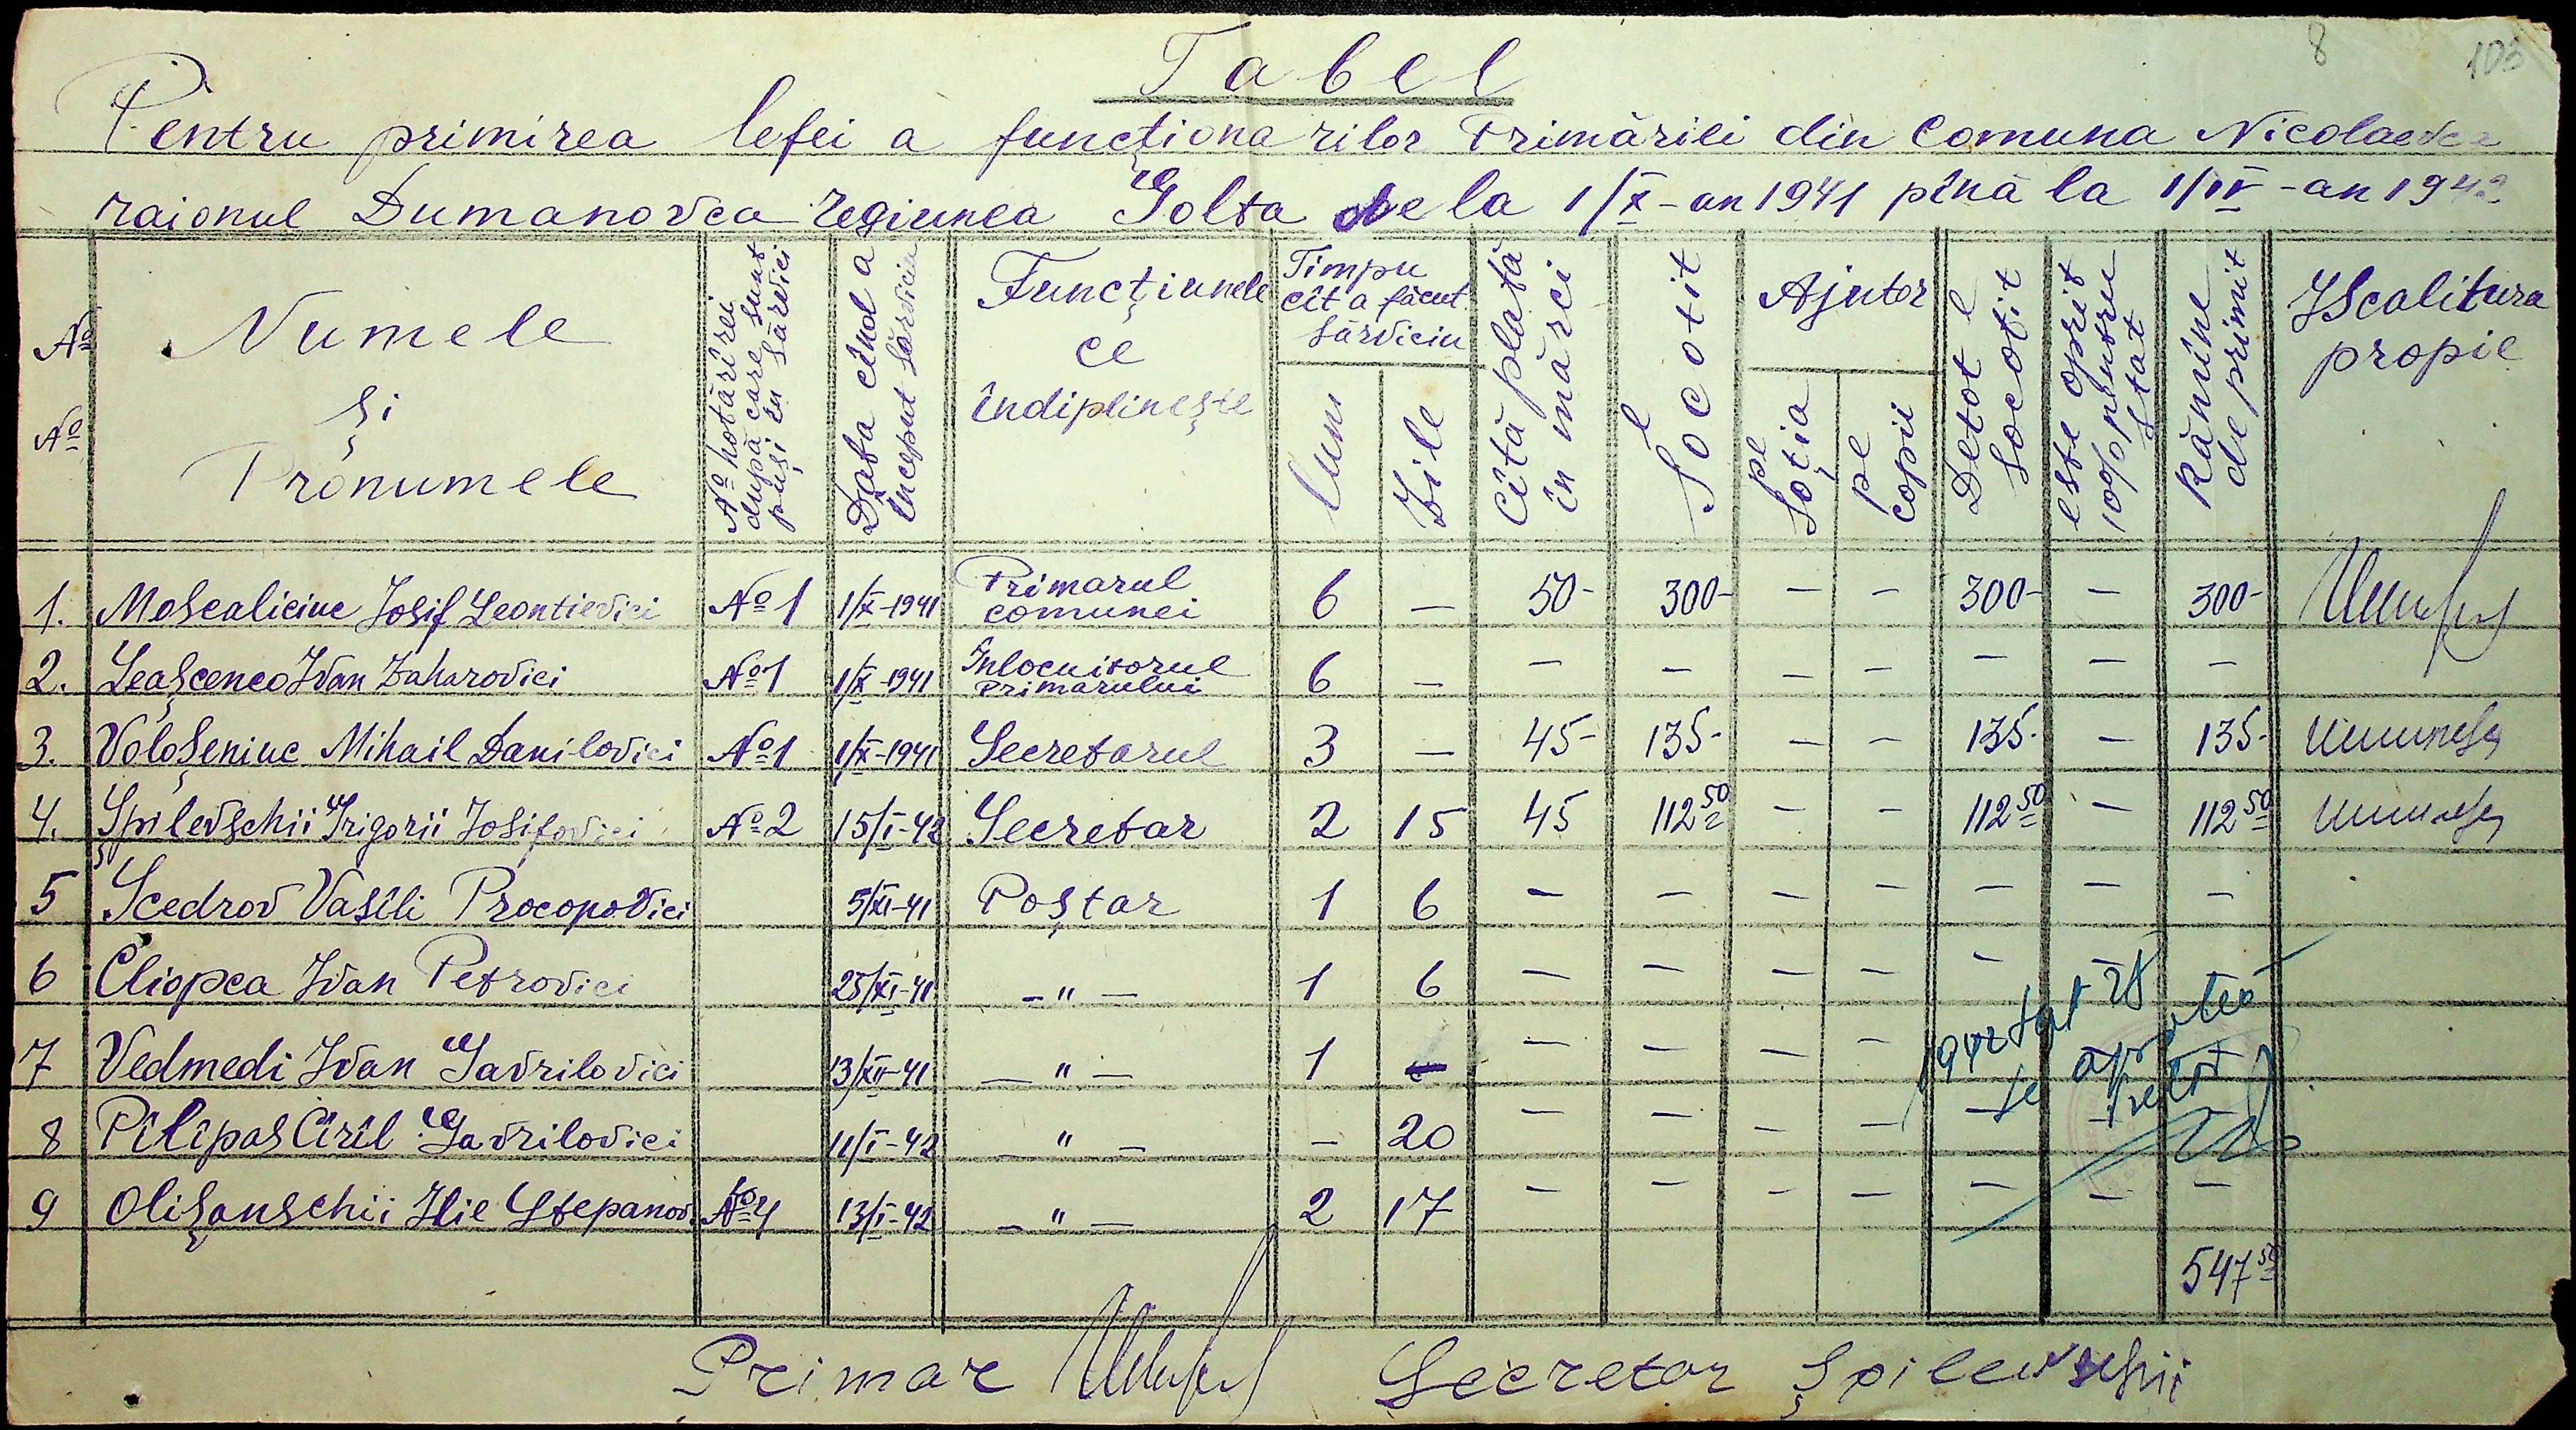 8 103
Tabel
Pentru primirea lefei a funcționarilor Primăriei din Comuna Nicolaevca
raionul Dumanovca regiunea Golta de la 1/X - an 1941 pînă la 1/IV - an 1942
No No
Numele
și
Pronumele
No hotărîrei
după care sunt
puși în sărvici
Data cînd a
început sărviciu
Funcțiunele
ce
îndiplinește
Timpu
cît a făcut
sărviciu
luni
Zile
Cîtă plată
în mărci
Socotit
Ajutor
pe
soția
pe
copii
Detot
Socotit
este oprit
10% pentru
stat
Rămîne
de primit
Iscalitura
propie
1. Moscaliciuc Iosif Leontievici No 1 1/X-1941 Primarul comunei 6 — 50- 300- — — 300- — 300-
2. Leașcenco Ivan Zaharovici No 1 1/X-1941 Înlocuitorul primarului 6 — — — — — — — —
3. Voloșeniuc Mihail Danilovici No 1 1/X-1941 Secretarul 3 — 45- 135- — — 135- — 135-
4. Șpilevschii Grigorii Iosifovici No 2 15/I-42 Secretar 2 15 45 112 50 — — 112 50 — 112 50
5 Scedrov Vasîli Procopovici 5/XI-41 Poștar 1 6 — — — — — — —
6 Cliopca Ivan Petrovici 25/XI-41 — " — 1 6 — — — — — —
7 Vedmedi Ivan Gavrilovici 13/XII-41 — " — 1 — — — —
8 Pîlîpas Cirîl Gavrilovici 11/I-42 — " — — 20 — — — — — —
9 Olișanschii Ilie Stepanov. No 4 13/I-42 — " — 2 17 — — — — — — —
547 50
1942
se
Primar Secretar Șpilevschii